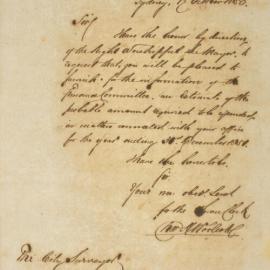 Sydney, October 1850.
Sir
Have the honor by direction
of the Right Worshipful the Mayor, to
request that you will be pleased to
furnish for the information of the
Finance Committee, an Estimate of the
probable amount required to be expended
in matters connected with your office
for the year ending 31st December 1851.
I have the honor to be,
Sir
Your mo. obed. Servt
for the Town Clerk
Woolcott
The City Surveyor